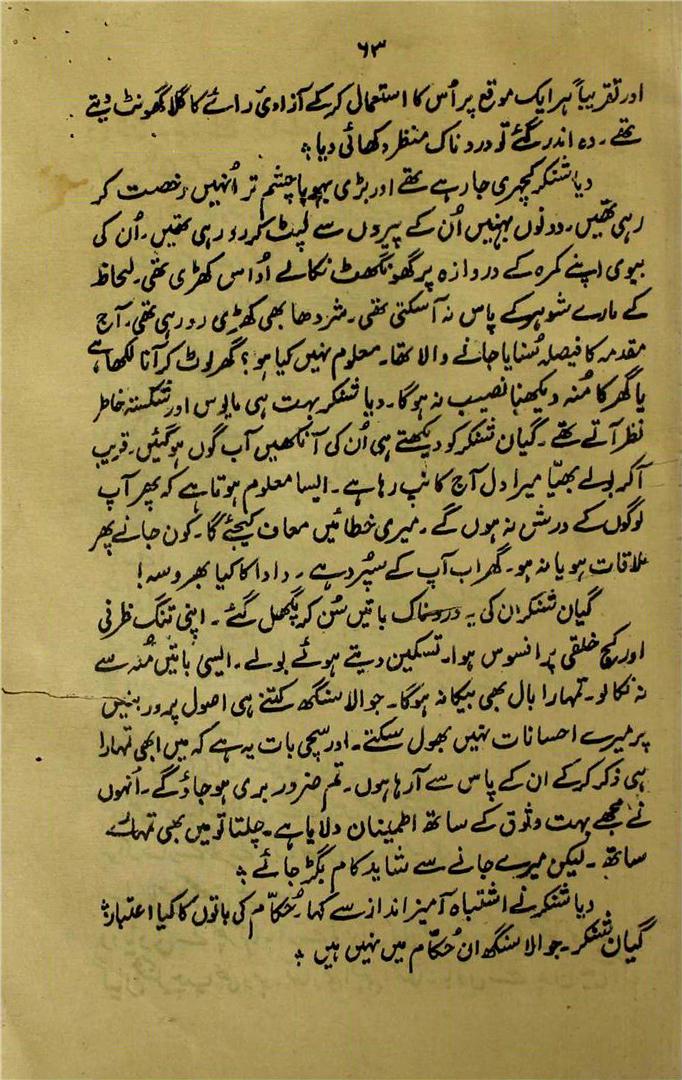 ۶۳
اور تقریباً ہر ایک موقع پر اُس کا استعمال کر کے آزادیٔ رائے کا گلا گھونٹ دیتے
تھے۔ وہ اندر گئے تو دردناک منظر دکھائی دیا ؞
دیا شنکر کچہری جا رہے تھے اور بڑی بہو با چشم تر اُنہیں رخصت کر
رہی تھیں۔ دونوں بہنیں اُن کے پیروں سے لپٹ کر رو رہی تھیں۔ اُن کی
بیوی اپنے کمرہ کے دروازہ پر گھونگھٹ نکالے اُداس کھڑی تھی۔ لحاظ
کے مارے شوہر کے پاس نہ آسکتی تھی۔ شردھا بھی کھڑی رو رہی تھی۔ آج
مقدمہ کا فیصلہ سُنایا جانے والا تھا۔ معلوم نہیں کیا ہو؟ گھر لوٹ کر آنا لکھا ہے
یا گھر کا مُنہ دیکھنا نصیب نہ ہوگا۔ دیا شنکر بہت ہی مایوس اور شکستہ خاطر
نظر آتے تھے۔ گیان شنکر کو دیکھتے ہی اُن کی آنکھیں آب گوں ہو گئیں۔ قریب
آکر بولے بھیّا میرا دل آج کانپ رہا ہے۔ ایسا معلوم ہوتا ہے کہ پھر آپ
لوگوں کے درشن نہ ہوں گے۔ میری خطائیں معاف کیجئے گا۔ کون جانے پھر
ملاقات ہو یا نہ ہو۔ گھر اب آپ کے سپُرد ہے۔ دادا کا کیا بھروسہ!
گیان شنکر ان کی یہ دردناک باتیں سُن کر پگھل گئے۔ اپنی تنگ ظرفی
اور کج خلقی پر افسوس ہوا۔ تسکین دیتے ہوئے بولے۔ ایسی باتیں مُنہ سے
نہ نکالو۔ تمہارا بال بھی بیکا نہ ہوگا۔ جوالا سنگھ کتنے ہی اصول پرور بنیں
پر میرے احسانات نہیں بھول سکتے۔ اور سچی بات یہ ہے کہ میں ابھی تمہارا
ہی ذکر کر کے ان کے پاس سے آرہا ہوں۔ تم ضرور بری ہو جاؤ گے۔ اُنہوں
نے مجھے بہت وثوق کے ساتھ اطمینان دلایا ہے۔ چلتا تو میں بھی تمہارے
ساتھ۔ لیکن میرے جانے سے شاید کام بگڑ جائے ؞
دیا شنکر نے اشتباہ آمیز انداز سے کہا۔ حُکاّم کی باتوں کا کیا اعتبار ؞
گیان شنکر۔ جوالا سنگھ ان حُکاّم میں نہیں ہیں ؞